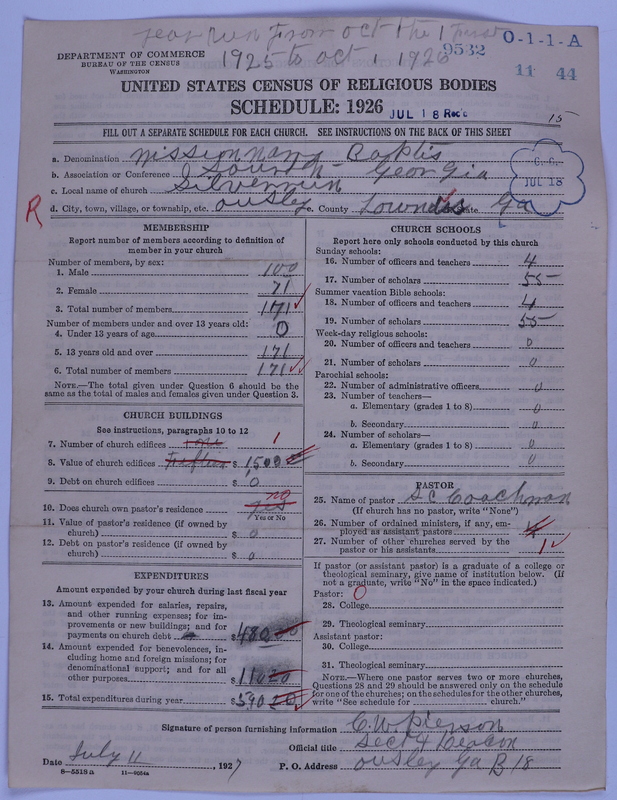 year run from oct the 1 first
1925 to oct 1 1926
9532 0-1-1-A
11 44
DEPARTMENT OF COMMERCE
BUREAU OF THE CENSUS
WASHINGTON
UNITED STATES CENSUS OF RELIGIOUS BODIES
SCHEDULE: 1926
JUL 18 Rec'd
15
FILL OUT A SEPARATE SCHEDULE FOR EACH CHURCH. SEE INSTRUCTIONS ON THE BACK OF THIS SHEET
a. Denomination Missionnary Baptis
b. Association or Conference South Georgia
c. Local name of church Silverrun
JUL 18
R
d. City, town, village, or township, etc. Ousley e. County Lowndes State Ga
MEMBERSHIP
Report number of members according to definition of
member in your church
Number of members, by sex:
1. Male 100
2. Female 71
3. Total number of members 171
Number of members under and over 13 years old:
4. Under 13 years of age 0
5. 13 years old and over 171
6. Total number of members 171
NOTE.—The total given under Question 6 should be
same as the total of males and females given under Question 3.
CHURCH BUILDINGS
See instructions, paragraphs 10 to 12
7. Number of church edifices one 1
8. Value of church edifices Fifteen $ 1500
9. Debt on church edifices $ 0
10. Does church own pastor's residence yes no
Yes or No
11. Value of pastor's residence (if owned by
church) $ 0
12. Debt on pastor's residence (if owned by
church) $ 0
EXPENDITURES
Amount expended by your church during last fiscal year
13. Amount expended for salaries, repairs,
and other running expenses; for im-
provements or new buildings; and for
payments on church debt $ 480 00
14. Amount expended for benevolences, in-
cluding home and foreign missions; for
denominational support; and for all
other purposes $ 110 20
15. Total expenditures during year $ 590 20
CHURCH SCHOOLS
Report here only schools conducted by this church
Sunday schools:
16. Number of officers and teachers 4
17. Number of scholars 55
Summer vacation Bible schools:
18. Number of officers and teachers 4
19. Number of scholars 55
Week-day religious schools:
20. Number of officers and teachers 0
21. Number of scholars 0
Parochial schools:
22. Number of administrative officers 0
23. Number of teachers—
a. Elementary (grades 1 to 8) 0
b. Secondary 0
24. Number of scholars—
a. Elementary (grades 1 to 8) 0
b. Secondary 0
PASTOR
25. Name of pastor S.C. Coachman
(If church has no pastor, write "None")
26. Number of ordained ministers, if any, em-
ployed as assistant pastors
27. Number of other churches served by the
pastor or his assistants 1
If pastor (or assistant pastor) is a graduate of a college or
theological seminary, give name of institution below. (If
not a graduate, write "No" in the space indicated.)
Pastor: 0
28. College
29. Theological seminary
Assistant pastor:
30. College
31. Theological seminary
NOTE.—Where one pastor serves two or more churches,
Questions 28 and 29 should be answered only on the schedule
for one of the churches; on the schedules for the other churches,
write "See schedule for church."
Signature of person furnishing information C. W. Pierson
Official title Sect & Deacon
Date July 11, 1927 P. O. Address Ousley Ga B 18
8—5518a 11—9054a